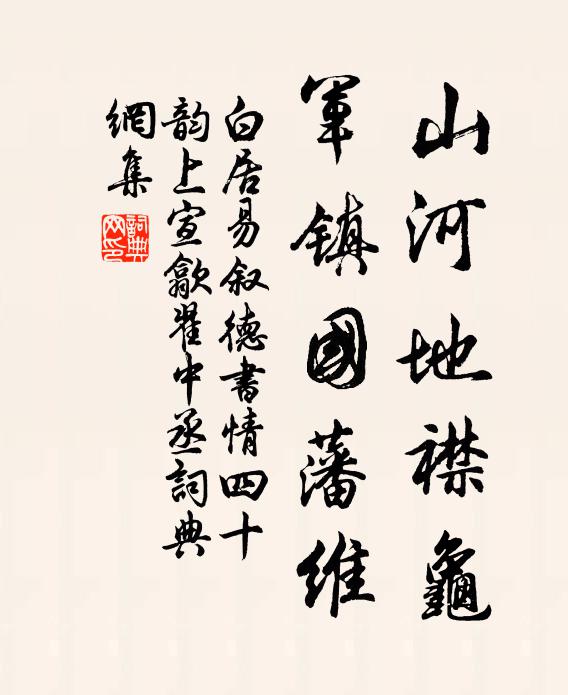 山河地襟龜
軍鎮國藩維
白居易叙德書情四十
韵上宣歙翟中丞詞典
網集
詞典
网印